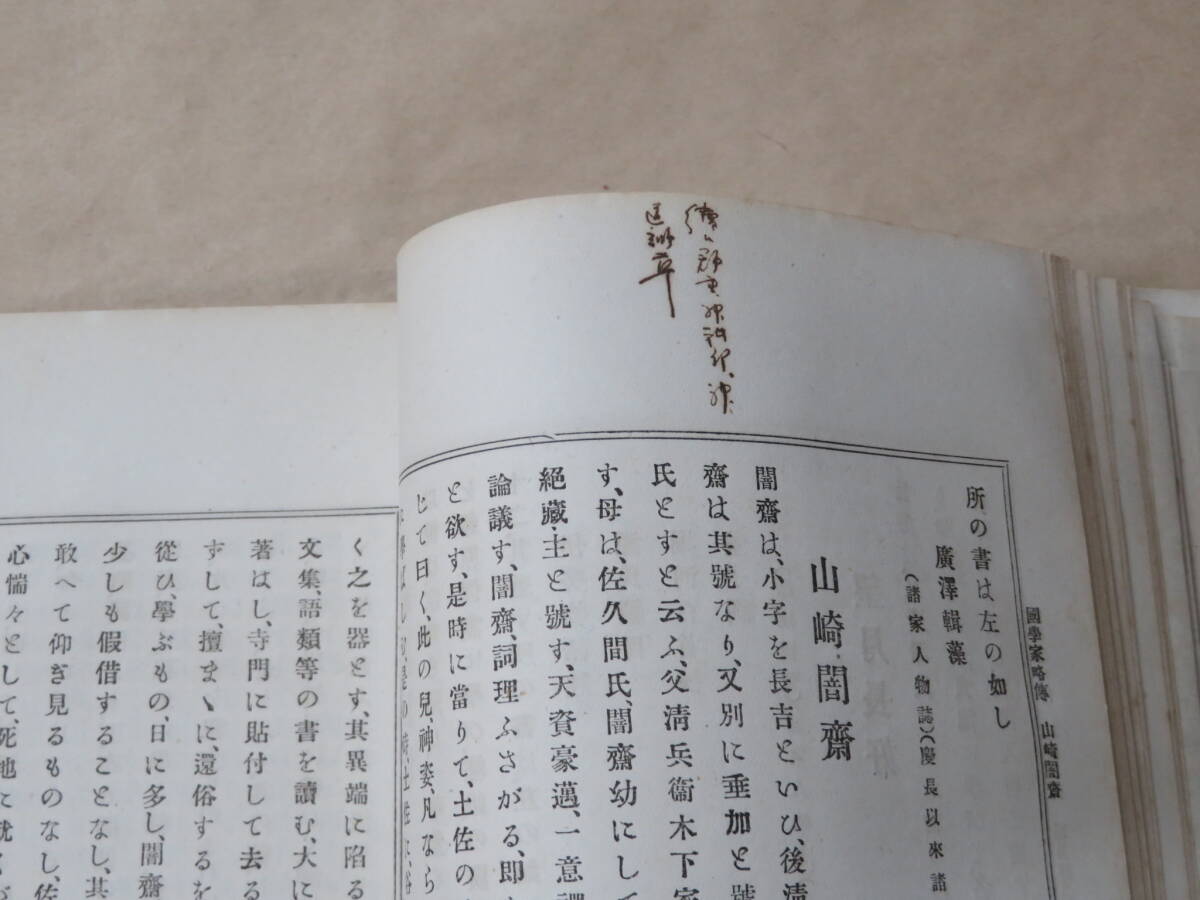 國學家略傳 山崎闇齋
所の書は左の如し
廣澤輯藻
(諸家人物誌)(慶長以來諸
山崎闇齋
闇齋は、小字を長吉といひ、後淸
齋は其號なり、又別に垂加と號
氏とすと云ふ、父淸兵衞木下家
す、母は、佐久間氏、闇齋幼にして
絕藏主と號す、天資豪邁、一意禪
論議す、闇齋、詞理ふさがる、卽
と欲す、是時に當りて、土佐の
じて曰く、此の兒、神姿、凡なら
く之を器とす、其異端に陷る
文集、語類等の書を讀む、大に
著はし、寺門に貼付して去る
ずして、擅まゝに、還俗するを
從ひ、學ぶもの、日に多し、闇齋
少しも假借することなし、其
敢へて仰ぎ見るものなし、佐
心惴々として、死地に就くが